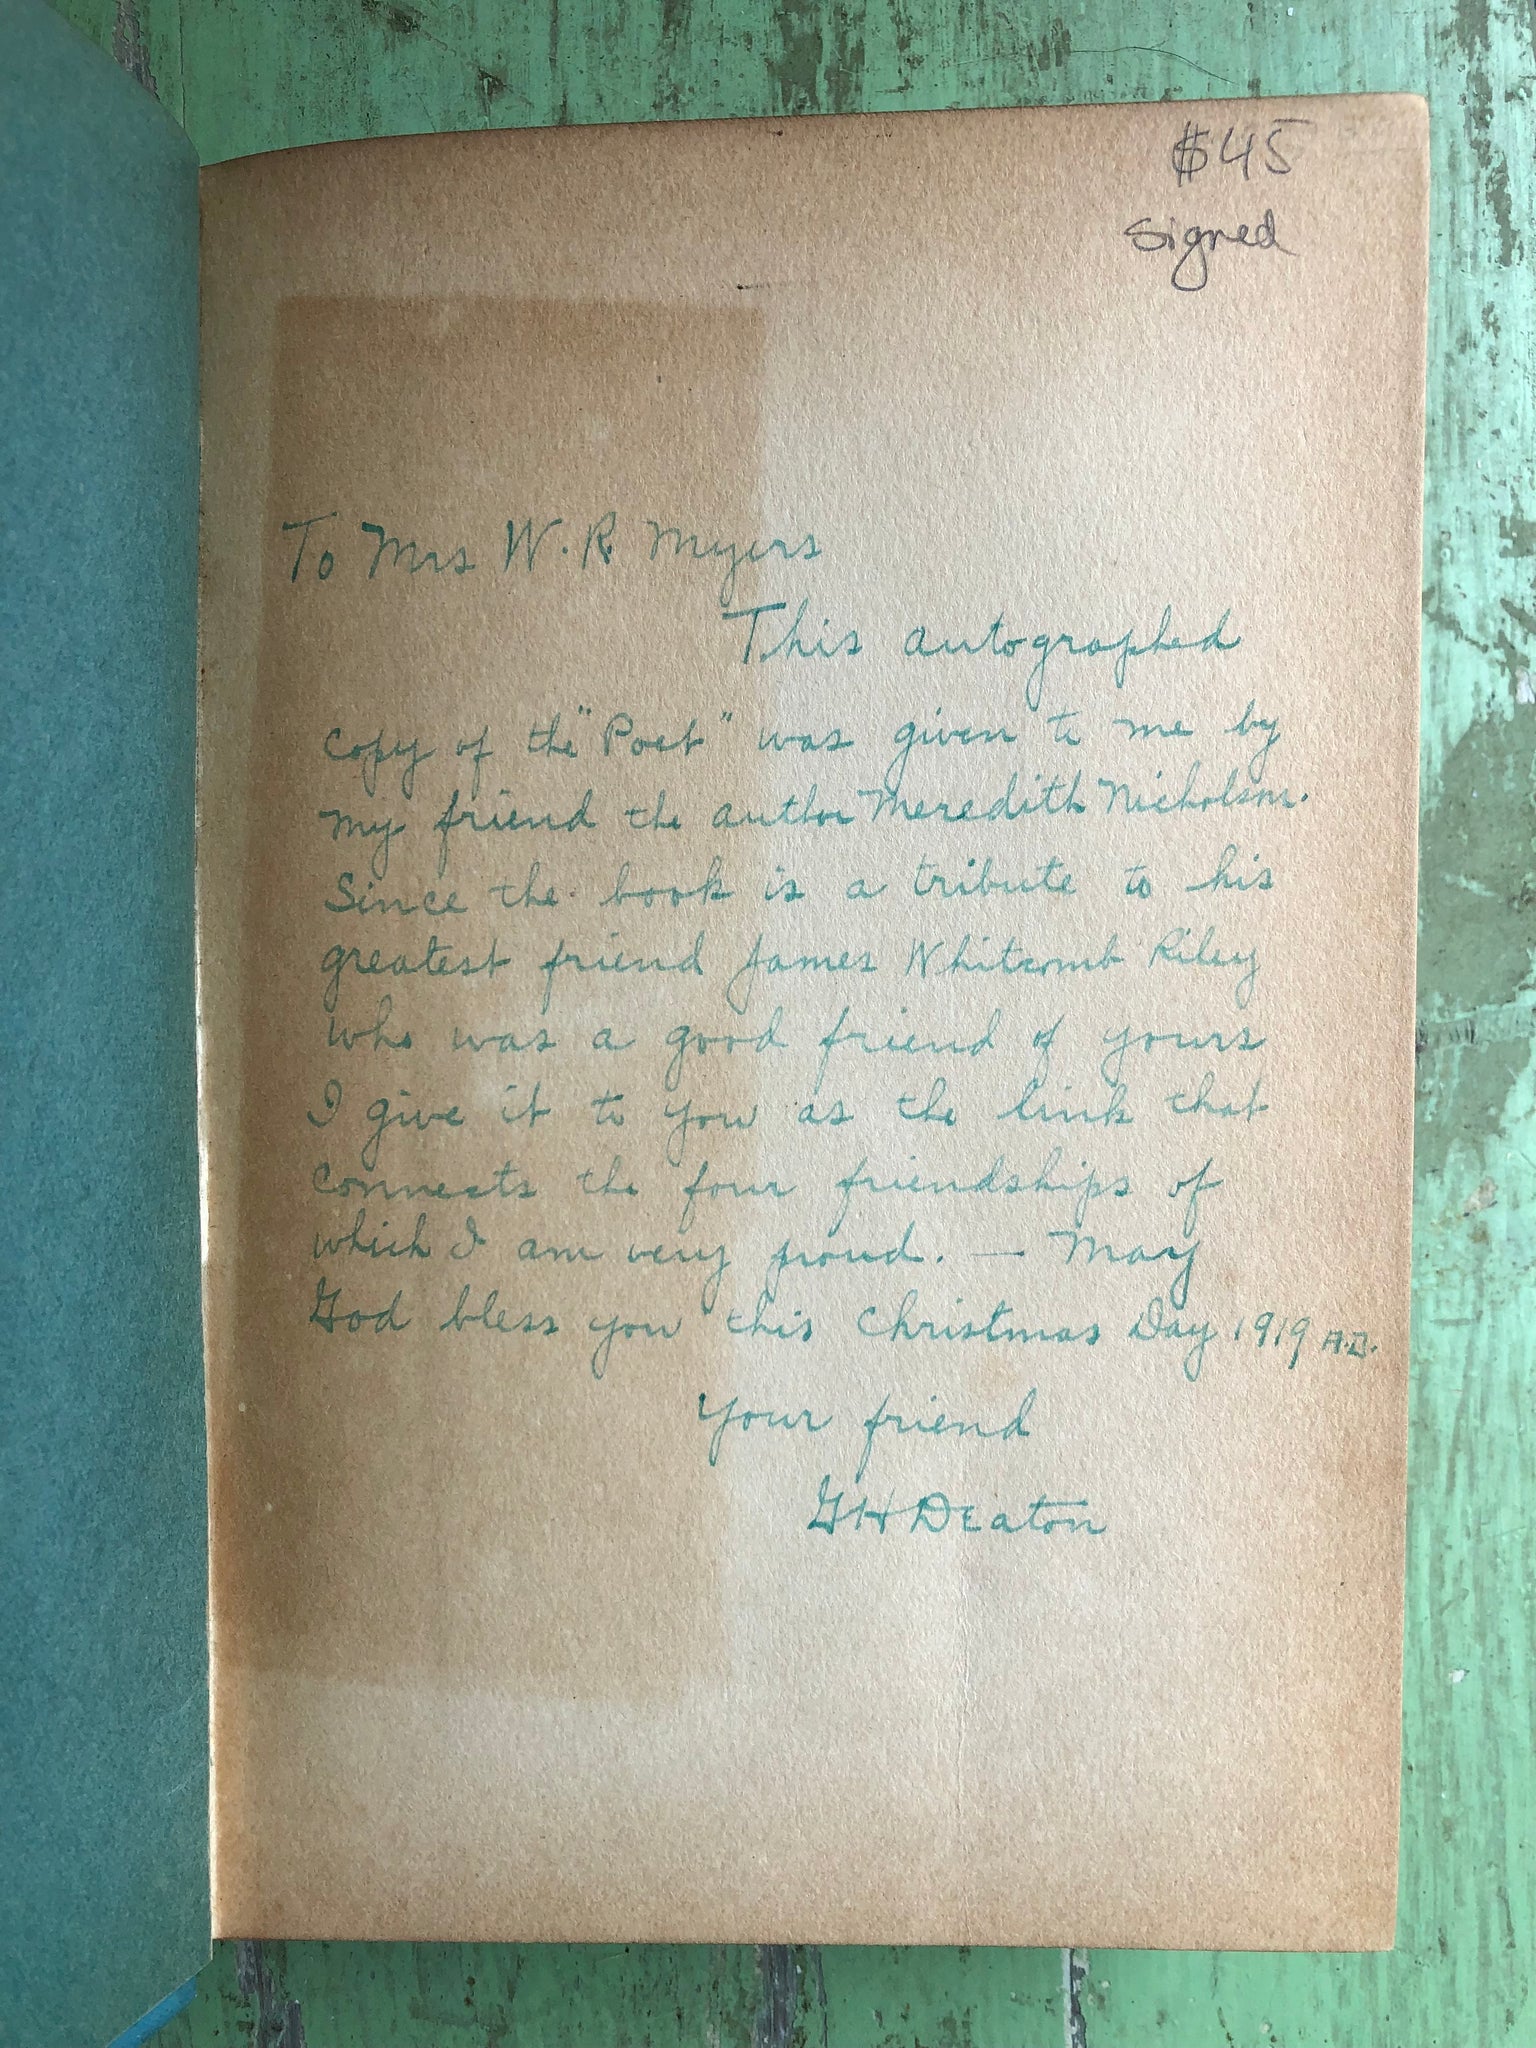 $45
signed
To Mrs W. R. Myers
This autographed
copy of the "Poet" was given to me by
my friend the author Meredith Nicholson.
Since the book is a tribute to his
greatest friend James Whitcomb Riley
who was a good friend of yours
I give it to you as the link that
connects the four friendships of
which I am very proud. — May
God bless you this Christmas Day 1919 A.D.
Your friend
GH Deaton